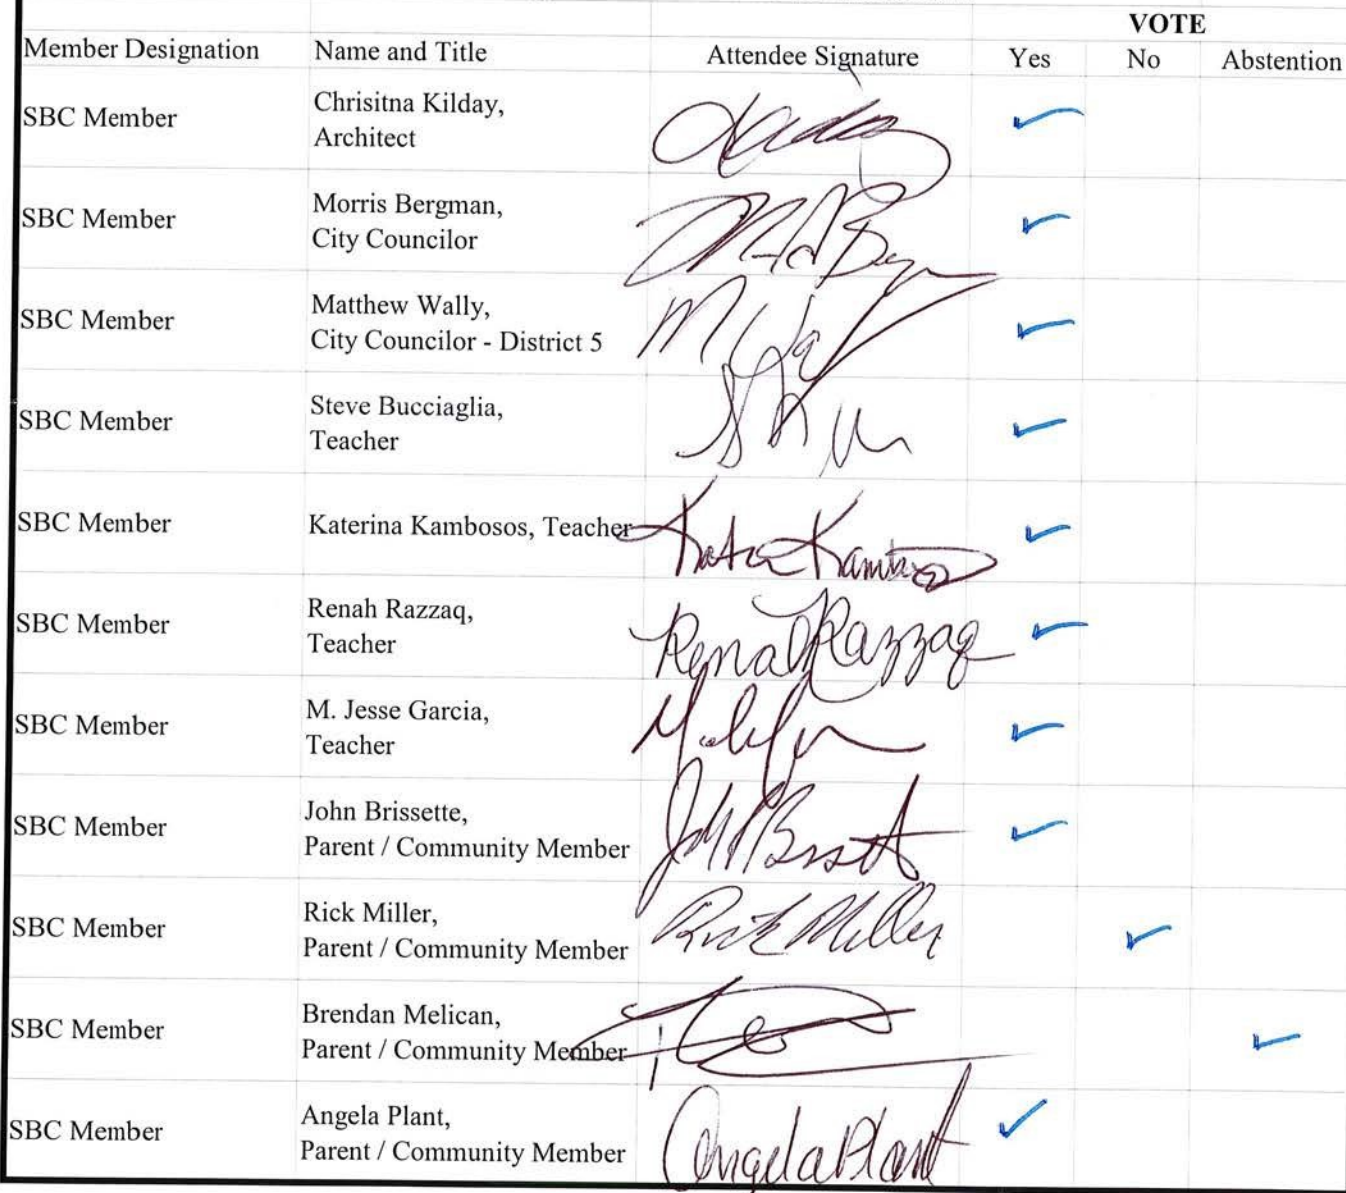 VOTE
Member Designation Name and Title Attendee Signature Yes No Abstention
SBC Member Chrisitna Kilday,
Architect
SBC Member Morris Bergman,
City Councilor
SBC Member Matthew Wally,
City Councilor - District 5
SBC Member Steve Bucciaglia,
Teacher
SBC Member Katerina Kambosos, Teacher
SBC Member Renah Razzaq,
Teacher Renah Razzaq
SBC Member M. Jesse Garcia,
Teacher
SBC Member John Brissette,
Parent / Community Member
SBC Member Rick Miller,
Parent / Community Member Rick Miller
SBC Member Brendan Melican,
Parent / Community Member
SBC Member Angela Plant,
Parent / Community Member Angela Plant